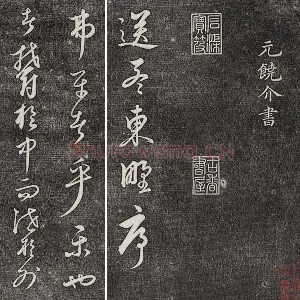 元饒介書
送孟東野序
弗平者乎樂也
者鬱於中而泄於外